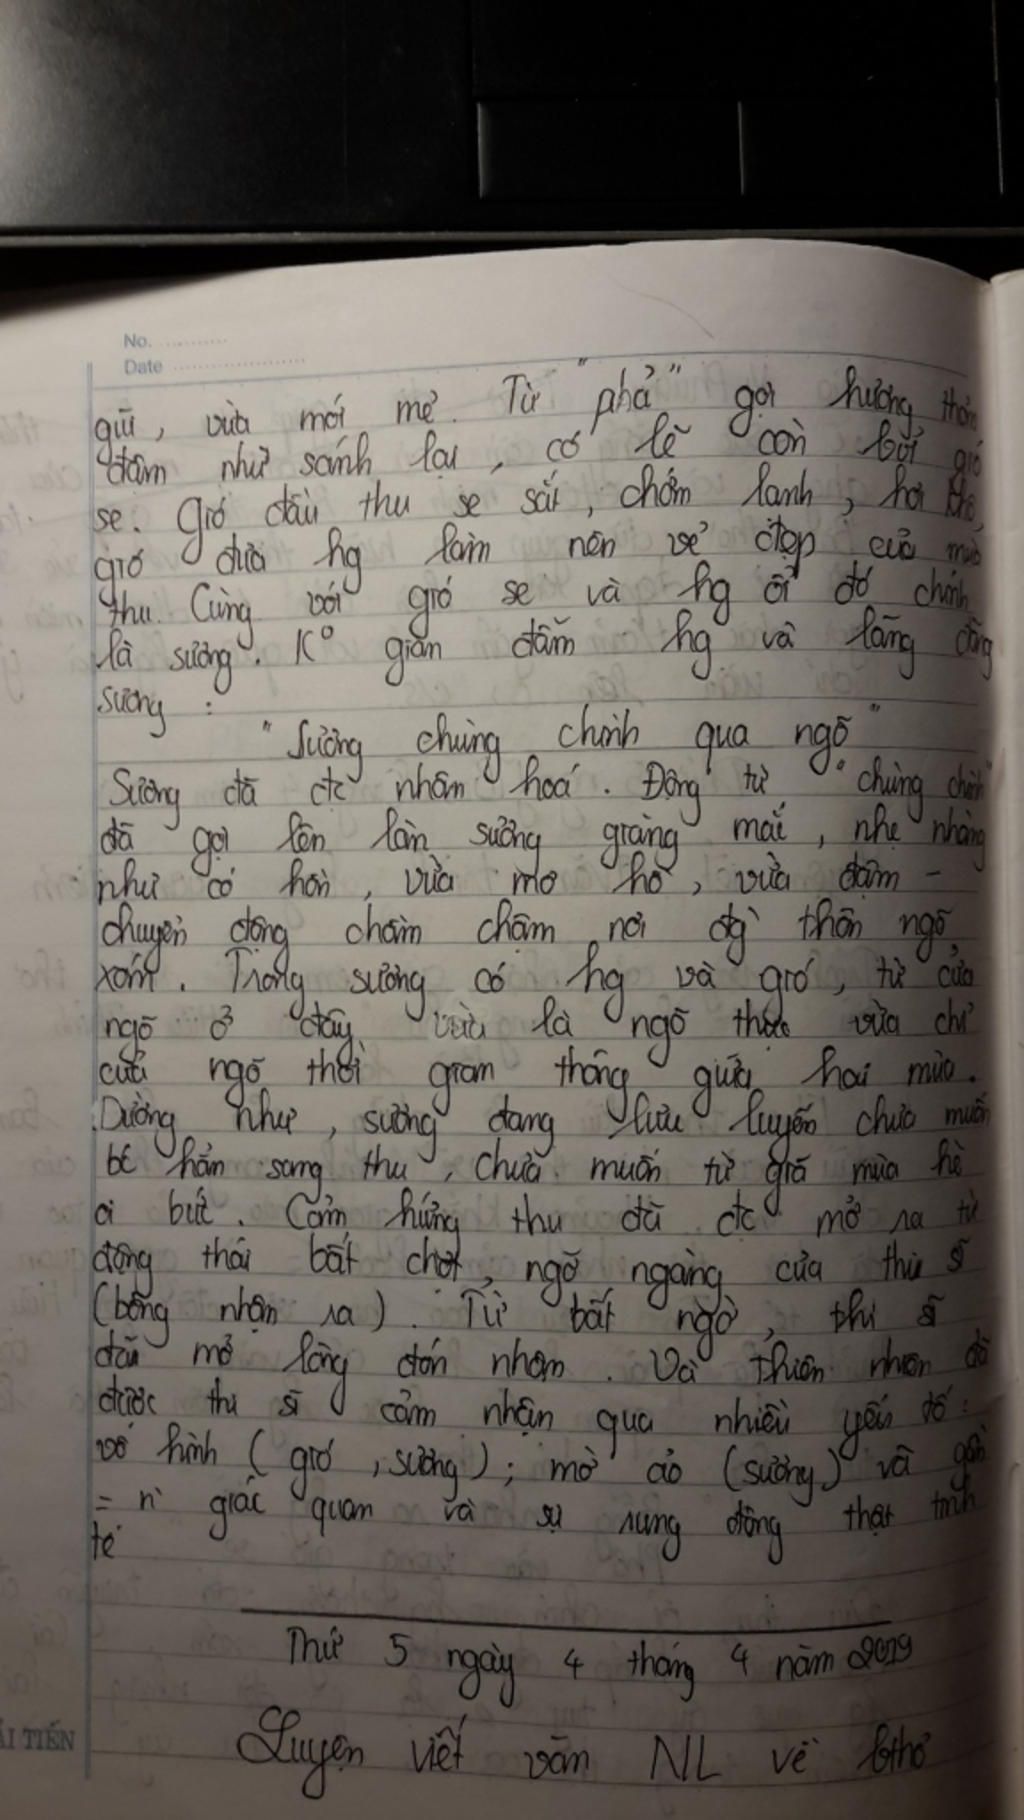 No. ............
Date ........................
gũi, vừa mới mẻ. Từ "phả" gợi hương thơm
đậm như sánh lại, có lẽ còn bởi gió
se. Gió đầu thu se sắt, chớm lạnh, hơi khô,
gió đưa hg làm nên vẻ đẹp của mùa
thu. Cùng với gió se và hg ổi đó chính
là sương. K° gian đẫm hg và lãng đãng
sương :
"Sương chùng chình qua ngõ"
Sương đã đc nhân hoá. Động từ "chùng chình"
đã gợi lên làn sương giăng mắc, nhẹ nhàng
như có hồn, vừa mơ hồ, vừa đậm -
chuyển động chầm chậm nơi đg thôn ngõ
xóm. Trong sương có hg và gió, từ cửa
ngõ ở đây vừa là ngõ thực vừa chỉ
cửa ngõ thời gian thông giữa hai mùa.
Dường như, sương đang lưu luyến chưa muốn
bc hẳn sang thu, chưa muốn từ giã mùa hè
oi bức. Cảm hứng thu đã đc mở ra từ
động thái bất chợt, ngỡ ngàng của thi sĩ
(bỗng nhận ra). Từ bất ngờ, thi sĩ
dần mở lòng đón nhận. Và thiên nhiên đã
được thi sĩ cảm nhận qua nhiều yếu tố :
vô hình (gió, sương); mờ ảo (sương) và gần
= n` giác quan và sự rung động thật tinh
tế
Thứ 5 ngày 4 tháng 4 năm 2019
Luyện viết văn NL về bthơ
ẢI TIẾN